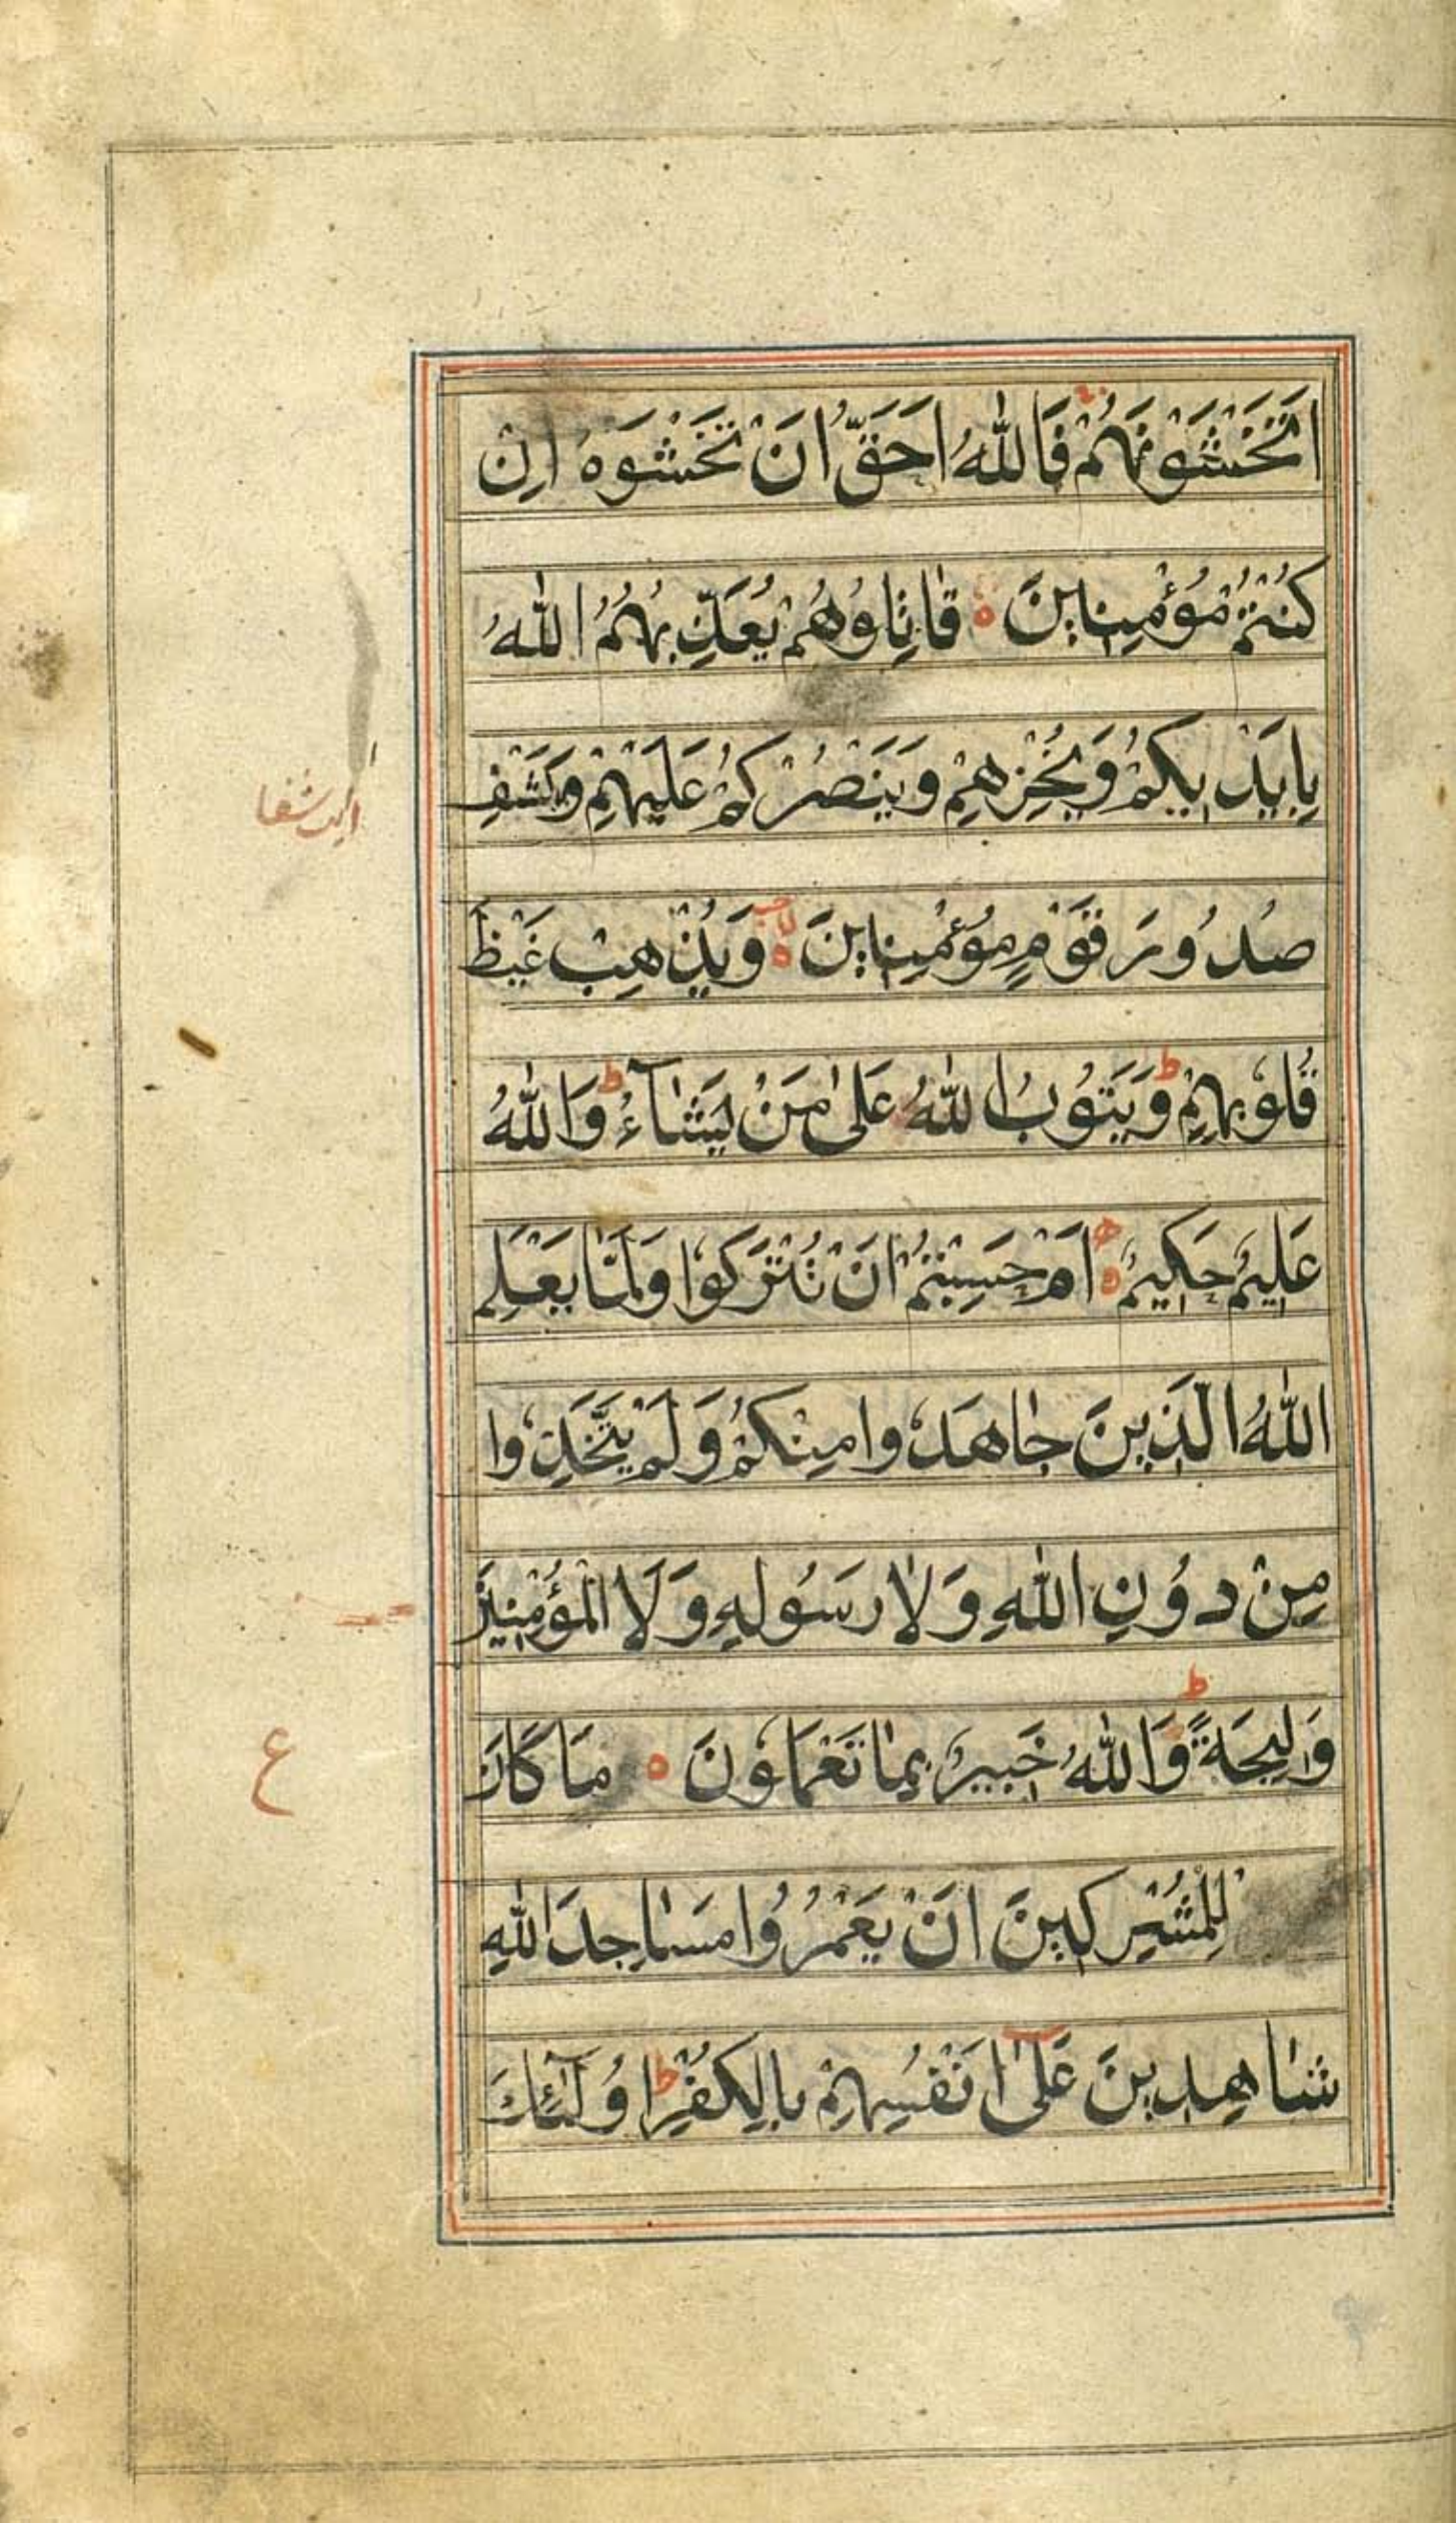 اَتَخْشَوْنَهُمْ فَاللّٰهُ اَحَقُّ اَنْ تَخْشَوْهُ اِنْ
كُنْتُمْ مُؤْمِنِيْنَ ه قَاتِلُوْهُمْ يُعَذِّبْهُمُ اللّٰهُ
بِاَيْدِيْكُمْ وَيُخْزِهِمْ وَيَنْصُرْكُمْ عَلَيْهِمْ وَيَشْفِ
ايت شفا
صُدُوْرَ قَوْمٍ مُؤْمِنِيْنَ ه لا وَيُذْهِبْ غَيْظَ
قُلُوْبِهِمْ ط وَيَتُوْبُ اللّٰهُ عَلٰى مَنْ يَّشَآءُ ط وَاللّٰهُ
عَلِيْمٌ حَكِيْمٌ ه اَمْ حَسِبْتُمْ اَنْ تُتْرَكُوْا وَلَمَّا يَعْلَمِ
اللّٰهُ الَّذِيْنَ جٰاهَدُوْا مِنْكُمْ وَلَمْ يَتَّخِذُوْا
مِنْ دُوْنِ اللّٰهِ وَلٰا رَسُوْلِهٖ وَلَا الْمُؤْمِنِيْنَ
وَلِيْجَةً ط وَاللّٰهُ خَبِيْرٌ بِمٰا تَعْمَلُوْنَ ه مَا كَانَ
ع
لِلْمُشْرِكِيْنَ اَنْ يَعْمُرُوْا مَسٰاجِدَ اللّٰهِ
شٰاهِدِيْنَ عَلٰٓى اَنْفُسِهِمْ بِالْكُفْرِ ط اُولٰٓئِكَ